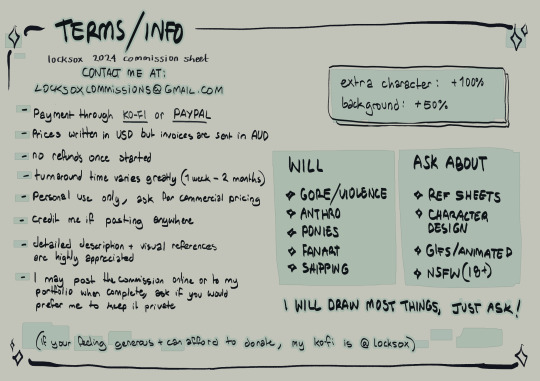 TERMS/INFO
locksox 2024 commission sheet
CONTACT ME AT:
LOCKSOXCOMMISSIONS@GMAIL.COM
- Payment through KO-FI or PAYPAL
- Prices written in USD but invoices are sent in AUD
- no refunds once started
- turnaround time varies greatly (1 week - 2 months)
- Personal use only, ask for commercial pricing
- Credit me if posting anywhere
- detailed description + visual references
are highly appreciated
- I may post the commission online or to my
portfolio when complete, ask if you would
prefer me to keep it private
extra character: +100%
background: +50%
WILL
GORE/VIOLENCE
ANTHRO
PONIES
FANART
SHIPPING
ASK ABOUT
REF SHEETS
CHARACTER
DESIGN
GIFS/ANIMATED
NSFW (18+)
I WILL DRAW MOST THINGS, JUST ASK!
(if your feeling generous + can afford to donate, my kofi is @locksox)